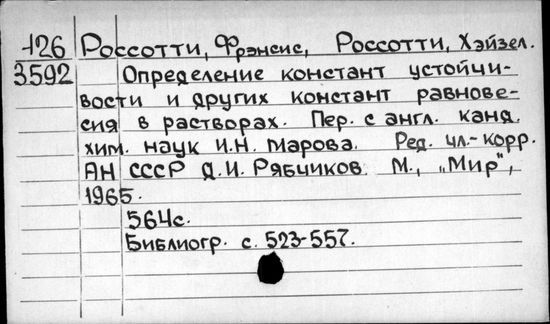 126 Россотти, Фрэнсис, Россотти, Хэйзел.
3592 Определение констант устойчи-
вости и других констант равнове-
сия в растворах. Пер. с англ. канд.
хим. наук И.Н. Марова. Ред. чл.-корр.
АН СССР Д.И. Рябчиков. М., „Мир",
1965.
564с.
Библиогр. с. 523-557.